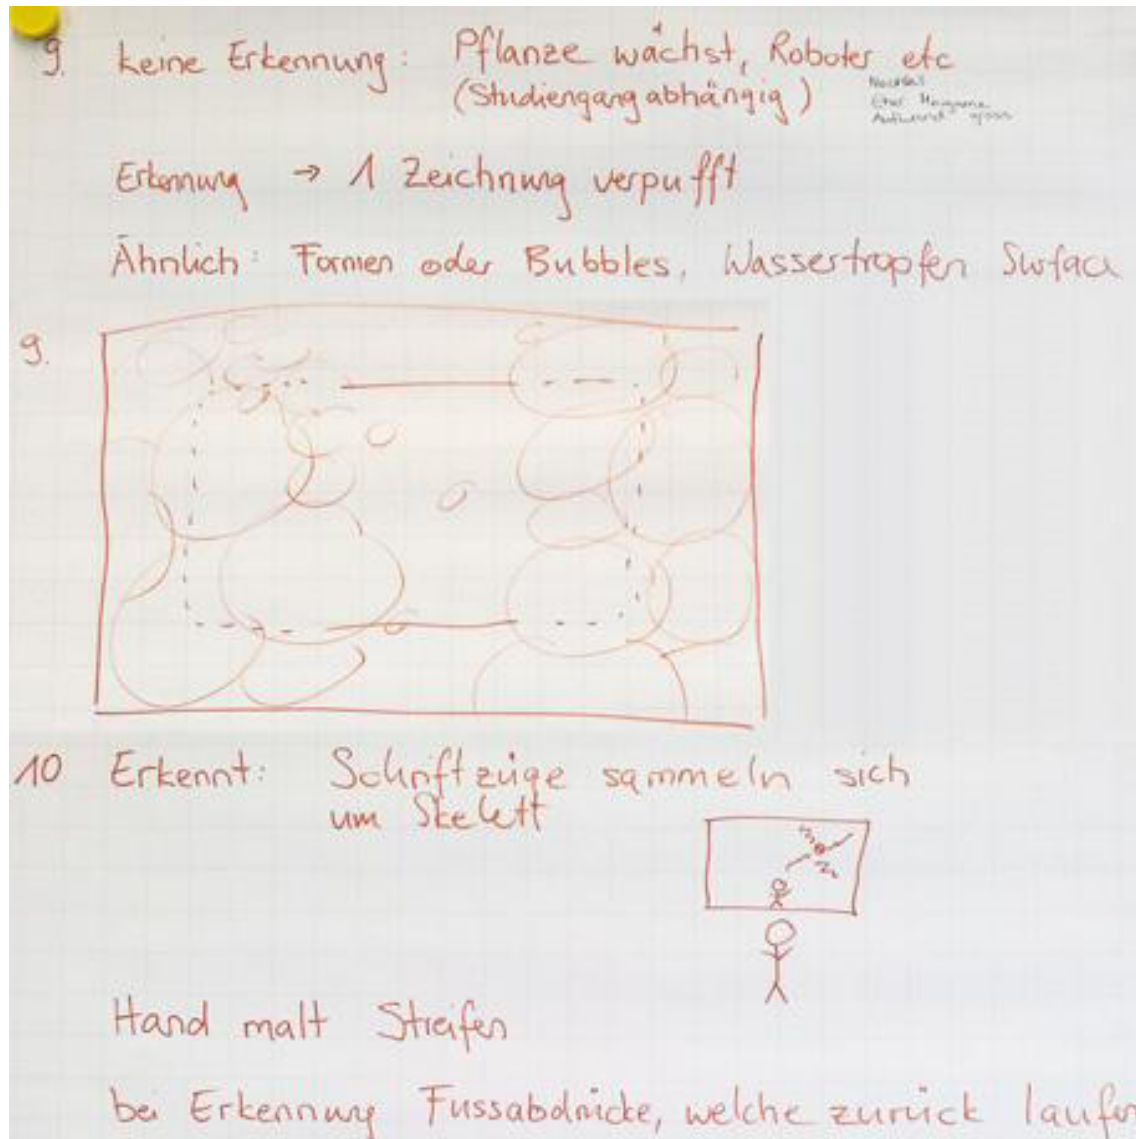 9. keine Erkennung: Pflanze wächst, Roboter etc
(Studiengang abhängig)
Erkennung → 1 Zeichnung verpufft
Ähnlich: Formen oder Bubbles, Wassertropfen Surface
9.
10 Erkennt: Schriftzüge sammeln sich
um Skelett
Hand malt Streifen
bei Erkennung Fussabdrücke, welche zurück laufen